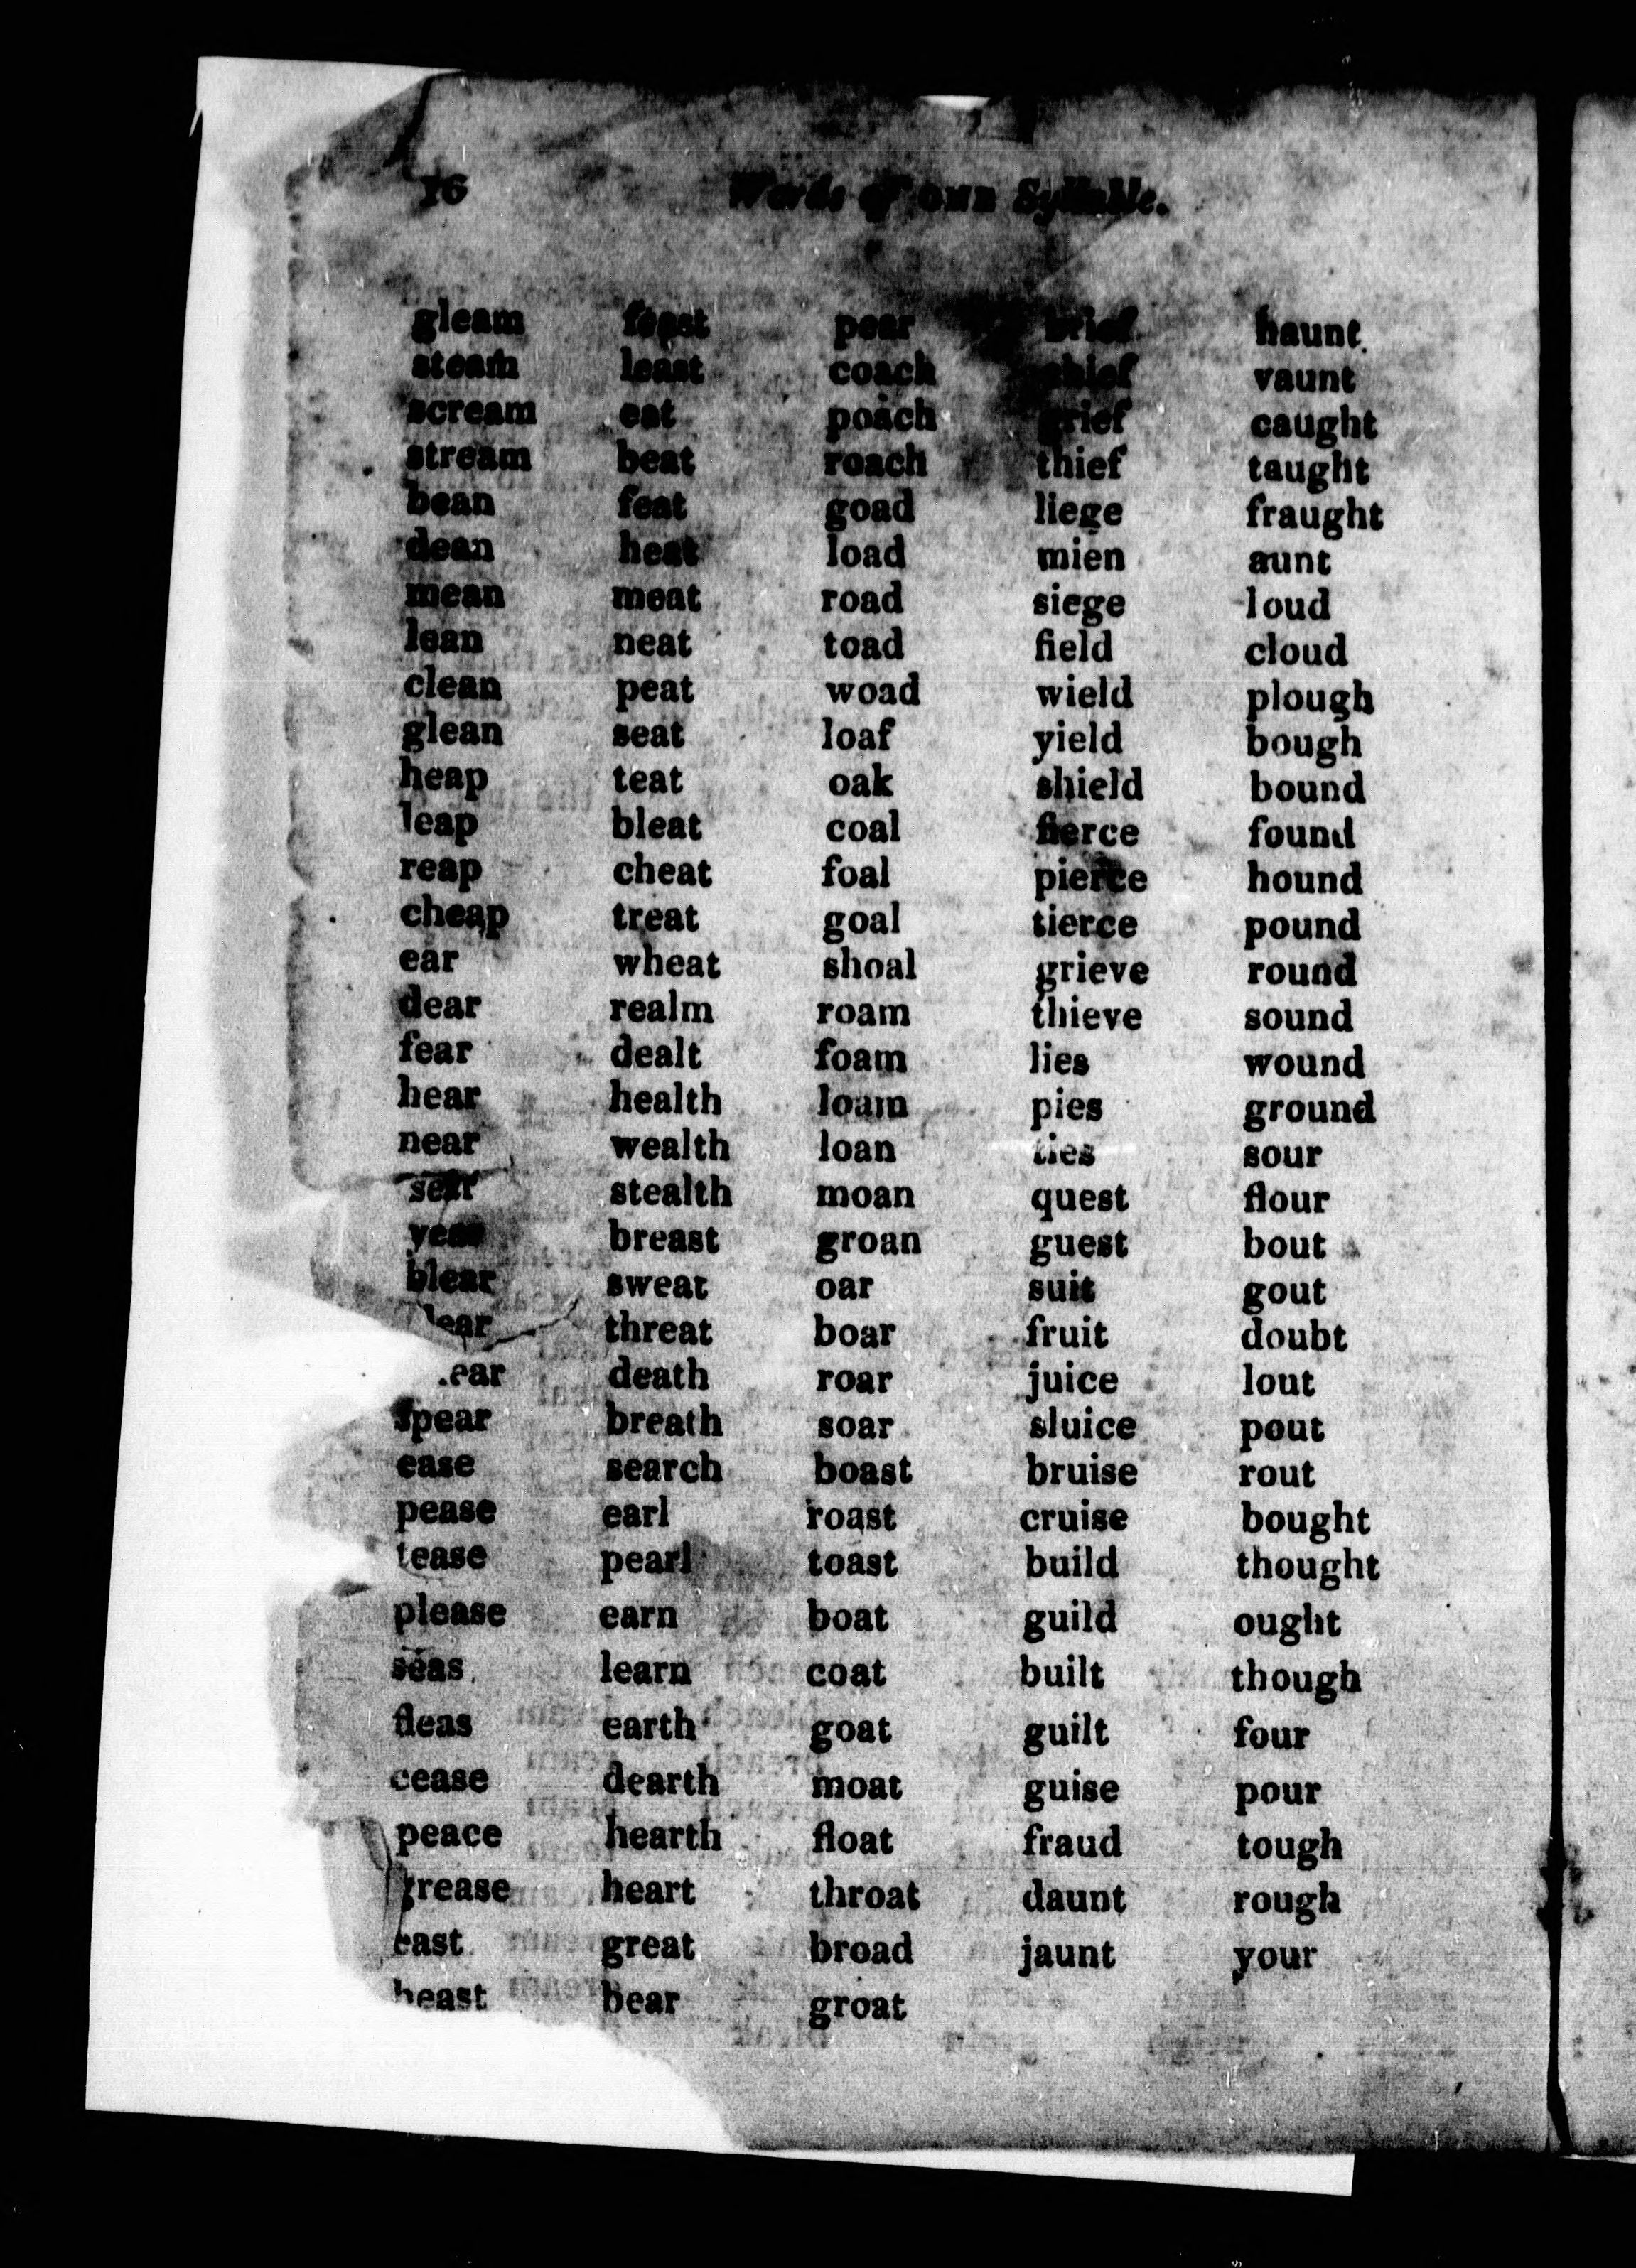 16 Words of ONE Syllable.
gleam feast pear brief haunt
steam least coach chief vaunt
scream eat poach grief caught
stream beat roach thief taught
bean feat goad liege fraught
dean heat load mien aunt
mean meat road siege loud
lean neat toad field cloud
clean peat woad wield plough
glean seat loaf yield bough
heap teat oak shield bound
leap bleat coal fierce found
reap cheat foal pierce hound
cheap treat goal tierce pound
ear wheat shoal grieve round
dear realm roam thieve sound
fear dealt foam lies wound
hear health loam pies ground
near wealth loan ties sour
sear stealth moan quest flour
year breast groan guest bout
blear sweat oar suit gout
lear threat boar fruit doubt
ear death roar juice lout
spear breath soar sluice pout
ease search boast bruise rout
pease earl roast cruise bought
tease pearl toast build thought
please earn boat guild ought
seas learn coat built though
fleas earth goat guilt four
cease dearth moat guise pour
peace hearth float fraud tough
grease heart throat daunt rough
east great broad jaunt your
beast bear groat